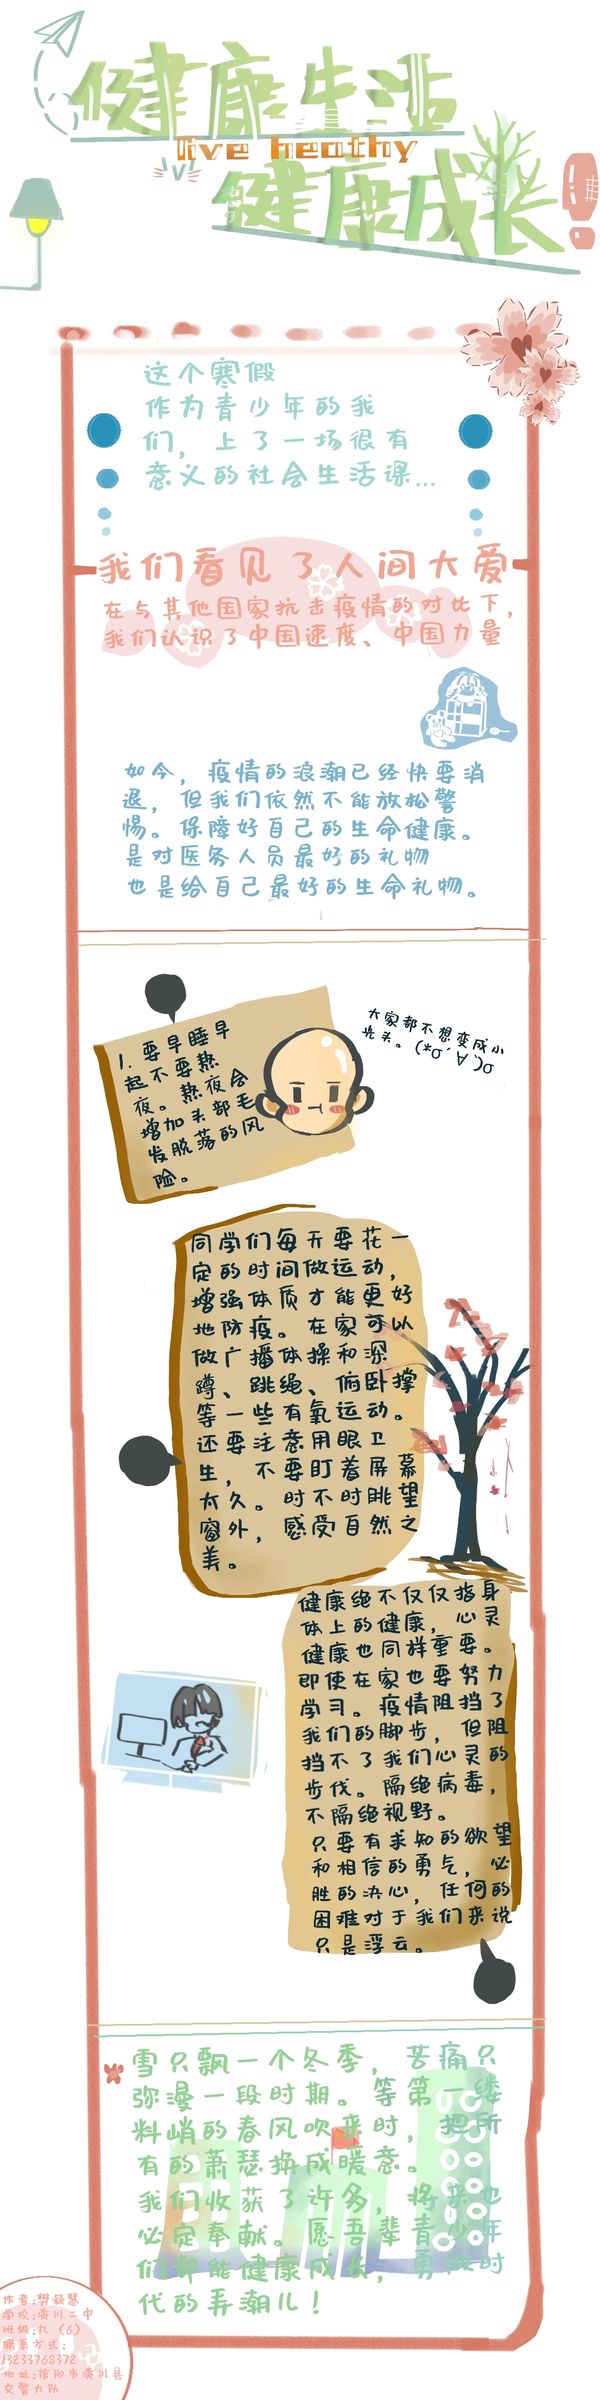 健康生活
live heathy
健康成长!
这个寒假
作为青少年的我
们，上了一场很有
意义的社会生活课...
我们看见了人间大爱
在与其他国家抗击疫情的对比下，
我们认识了中国速度、中国力量
如今，疫情的浪潮已经快要消
退，但我们依然不能放松警
惕。保障好自己的生命健康。
是对医务人员最好的礼物
也是给自己最好的生命礼物。
1.要早睡早
起不要熬
夜。熬夜会
增加头部毛
发脱落的风
险。
大家都不想变成小
光头。(*σ´∀`)σ
同学们每天要花一
定的时间做运动，
增强体质才能更好
地防疫。在家可以
做广播体操和深
蹲、跳绳、俯卧撑
等一些有氧运动。
还要注意用眼卫
生，不要盯着屏幕
太久。时不时眺望
窗外，感受自然之
美。
健康绝不仅仅指身
体上的健康，心灵
健康也同样重要。
即使在家也要努力
学习。疫情阻挡了
我们的脚步，但阻
挡不了我们心灵的
步伐。隔绝病毒，
不隔绝视野。
只要有求知的欲望
和相信的勇气，必
胜的决心，任何的
困难对于我们来说
只是浮云。
雪只飘一个冬季，苦痛只
弥漫一段时期。等第一缕
料峭的春风吹来时，把所
有的萧瑟换成暖意。
我们收获了许多，将来也
必定奉献。愿吾辈青少年
们都能健康成长，勇做时
代的弄潮儿！
作者:樊颖慧
学校:潢川二中
班级:九（6）
联系方式:
13233768372
地址:信阳市潢川县
交警大队